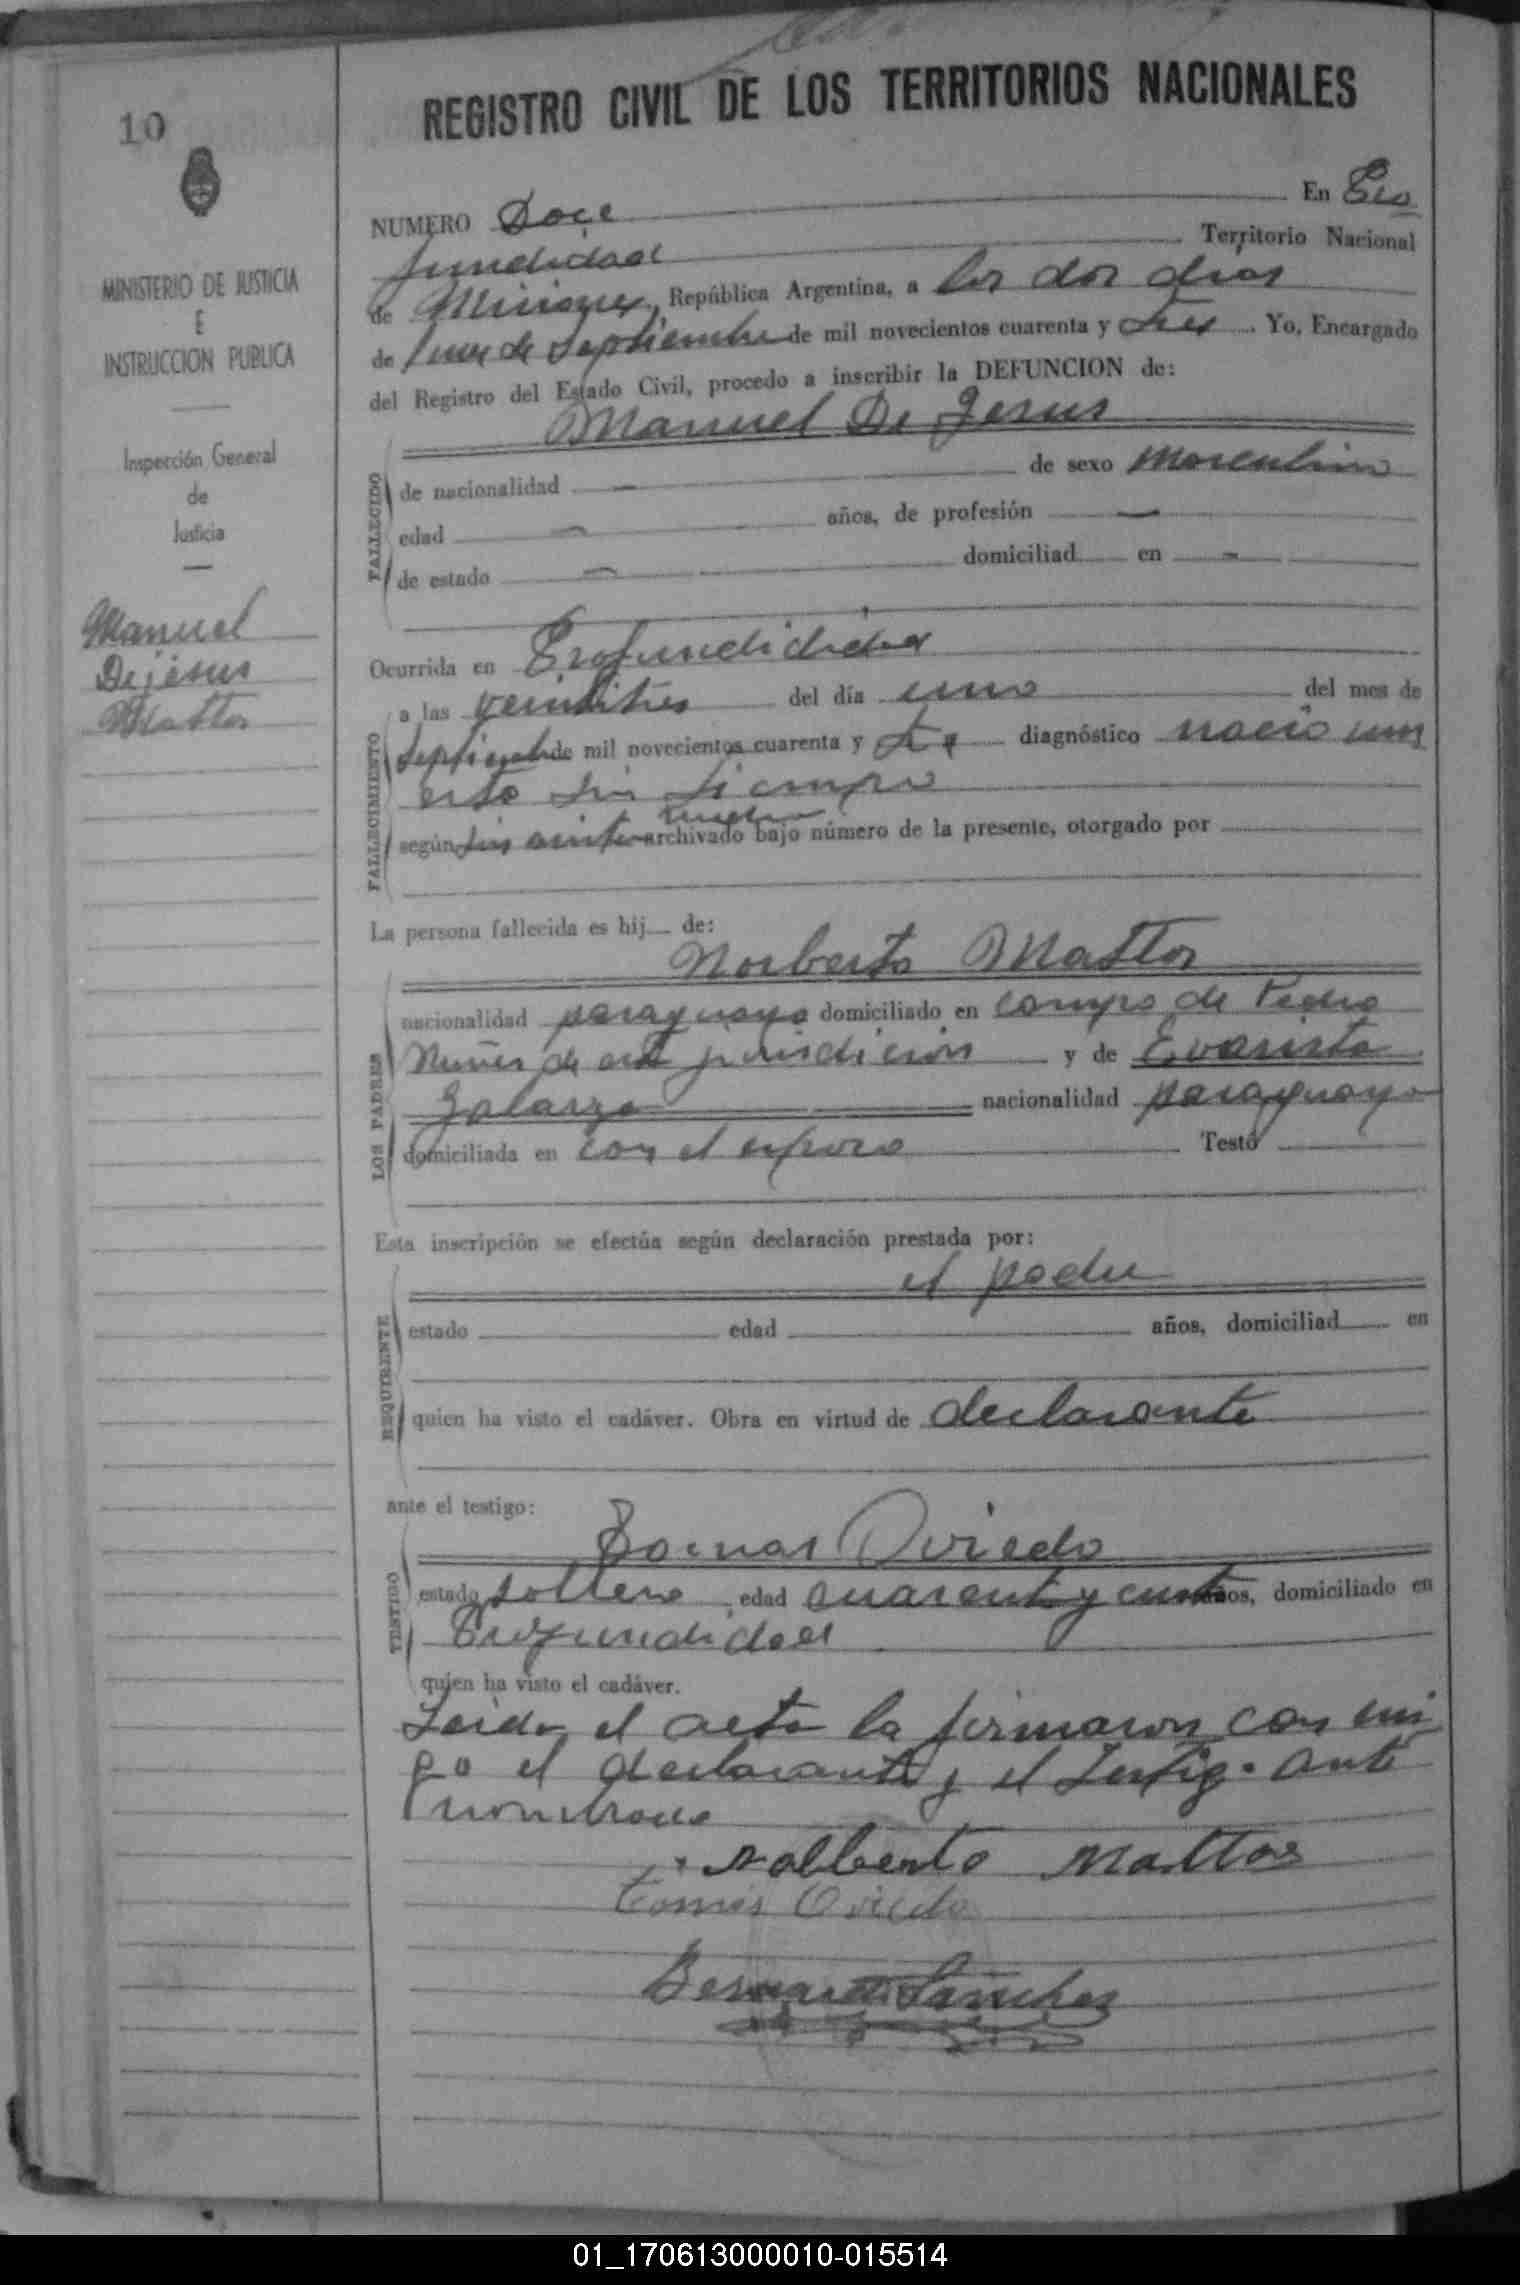 10
MINISTERIO DE JUSTICIA
E
INSTRUCCION PUBLICA
Inspección General
de
Justicia
Manuel
De jesus
Mattos
REGISTRO CIVIL DE LOS TERRITORIOS NACIONALES
NUMERO Doce En Pro
fundidad Territorio Nacional
de Misiones, República Argentina, a los dos dias
de mes de Septiembre de mil novecientos cuarenta y tres. Yo, Encargado
del Registro del Estado Civil, procedo a inscribir la DEFUNCION de:
Manuel De Jesus
FALLECIDO
de nacionalidad — de sexo masculino
edad — años, de profesión —
de estado — domiciliad en —
Ocurrida en Profundidad
FALLECIMIENTO
a las veintitres del día uno del mes de
Septiembre de mil novecientos cuarenta y tres diagnóstico nacio mu
erto sin tiempo
según sin archivado bajo número de la presente, otorgado por
La persona fallecida es hij de:
LOS PADRES
Norberto Mattos
nacionalidad paraguayo domiciliado en campo de Pedro
Nuñes de esta jurisdicion y de Evarista
Galarza nacionalidad paraguaya
domiciliada en con el esposo Testó
Esta inscripción se efectúa según declaración prestada por:
el padre
REQUIRENTE
estado edad años, domiciliad en
quien ha visto el cadáver. Obra en virtud de declarante
ante el testigo:
TESTIGO
Tomas Oviedo
estado soltero, edad cuarenta y cuatro años, domiciliado en
Profundidad
quien ha visto el cadáver.
Leida el acta la firmaron con mi
go el declarante y el Testigo ante
nombrado
Nolberto Mattos
tomas Oviedo
Bernardo Sanchez
01_170613000010-015514